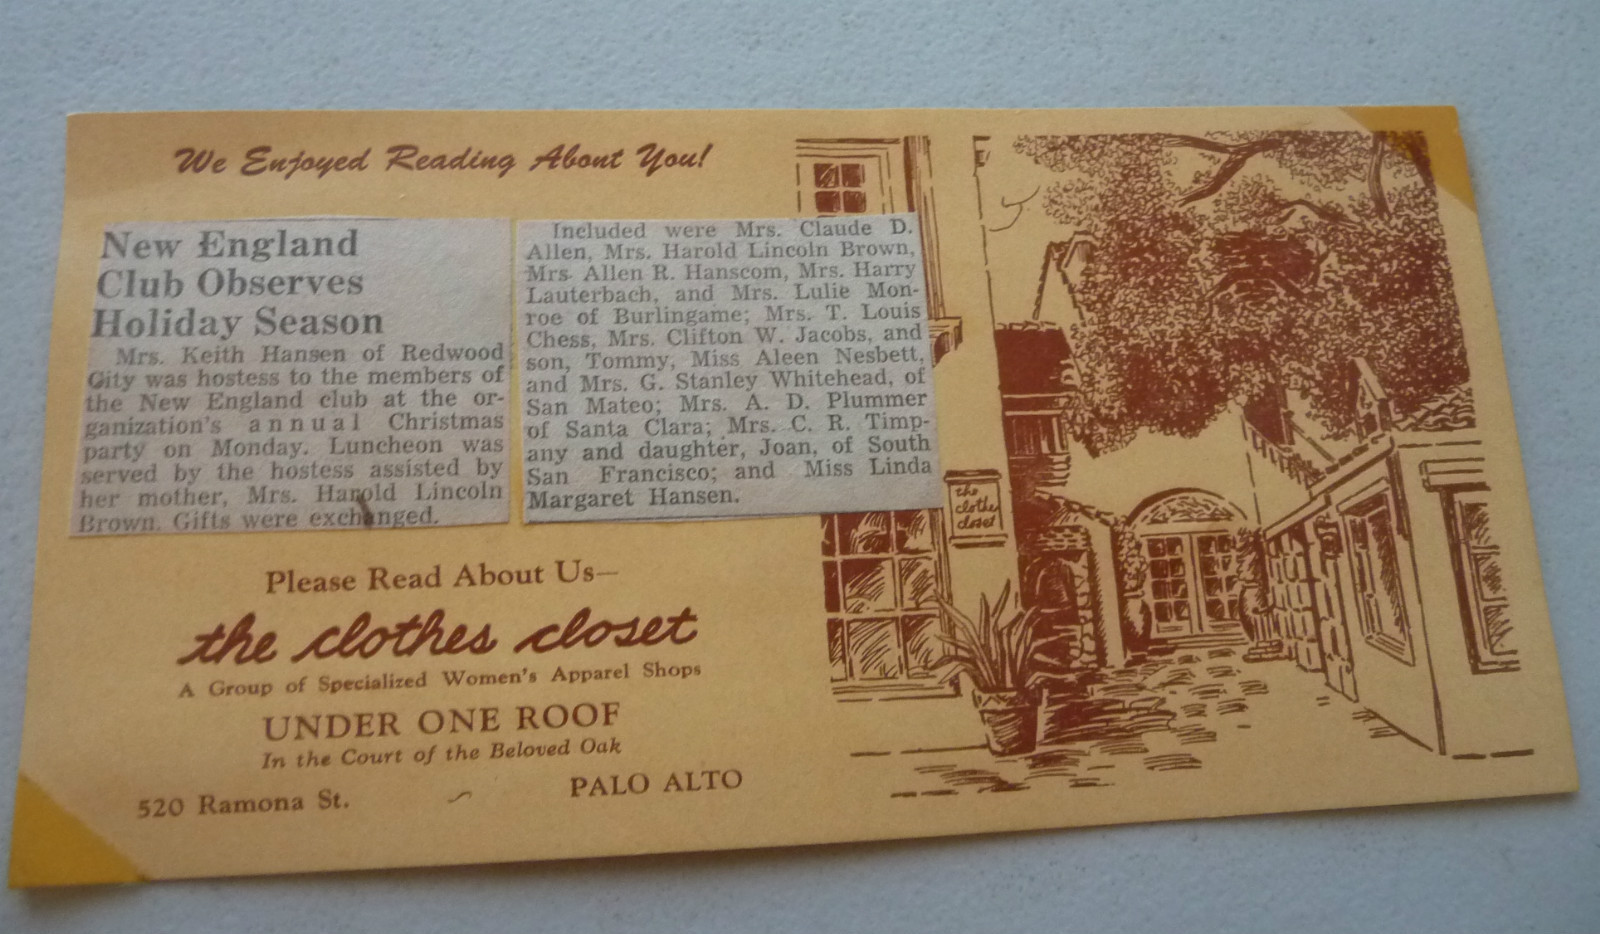 We Enjoyed Reading About You!
New England
Club Observes
Holiday Season
Mrs. Keith Hansen of Redwood
City was hostess to the members of
the New England club at the or-
ganization's annual Christmas
party on Monday. Luncheon was
served by the hostess assisted by
her mother, Mrs. Harold Lincoln
Brown. Gifts were exchanged.
Included were Mrs. Claude D.
Allen, Mrs. Harold Lincoln Brown,
Mrs. Allen R. Hanscom, Mrs. Harry
Lauterbach, and Mrs. Lulie Mon-
roe of Burlingame; Mrs. T. Louis
Chess, Mrs. Clifton W. Jacobs, and
son, Tommy, Miss Aleen Nesbett,
and Mrs. G. Stanley Whitehead, of
San Mateo; Mrs. A. D. Plummer
of Santa Clara; Mrs. C. R. Timp-
any and daughter, Joan, of South
San Francisco; and Miss Linda
Margaret Hansen.
the
clothes
closet
Please Read About Us—
the clothes closet
A Group of Specialized Women's Apparel Shops
UNDER ONE ROOF
In the Court of the Beloved Oak
520 Ramona St. ~ PALO ALTO